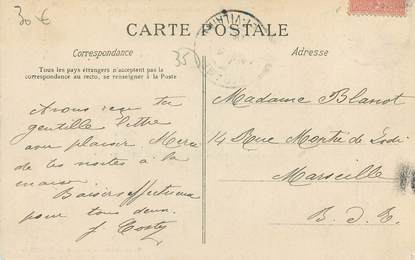 30 €
CARTE POSTALE
Correspondance
Adresse
35
Tous les pays étrangers n'acceptent pas la
correspondance au recto, se renseigner à la Poste
Avons reçu ta
gentille lettre
avec plaisir. Merci
de tes visites à la
maison.
Baisers affectueux
pour tous deux.
J. Costy
Madame Blanot
14 Rue Montée de Lodi
Marseille
B. d. R.